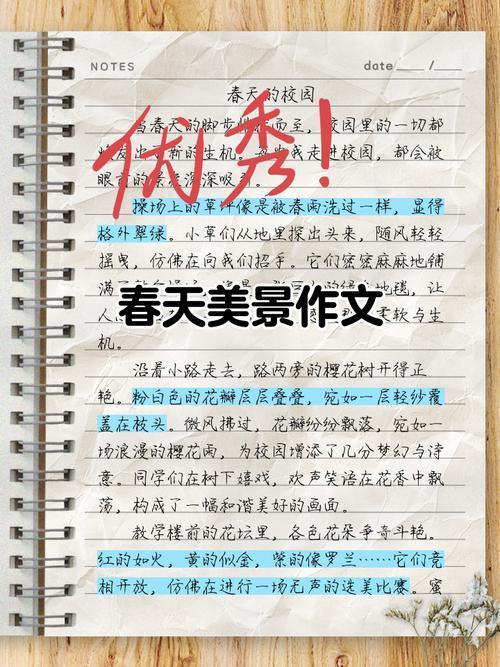 NOTES
date /
春天的校园
当春天的脚步悄然而至，校园里的一切都
焕发出新的生机。每当我走进校园，都会被
眼前的景色深深吸引。
操场上的草坪像是被春雨洗过一样，显得
格外翠绿。小草们从地里探出头来，随风轻轻
摇曳，仿佛在向我们招手。它们密密麻麻地铺
地毯，让
春天美景作文
人
柔软与生
机。
沿着小路走去，路两旁的樱花树开得正
艳。粉白色的花瓣层层叠叠，宛如一层轻纱覆
盖在枝头。微风拂过，花瓣纷纷飘落，宛如一
场浪漫的樱花雨，为校园增添了几分梦幻与诗
意。同学们在树下嬉戏，欢声笑语在花香中飘
荡，构成了一幅和谐美好的画面。
教学楼前的花坛里，各色花朵争奇斗艳。
红的如火，黄的似金，紫的像罗兰……它们竞
相开放，仿佛在进行一场无声的选美比赛。蜜
优秀！